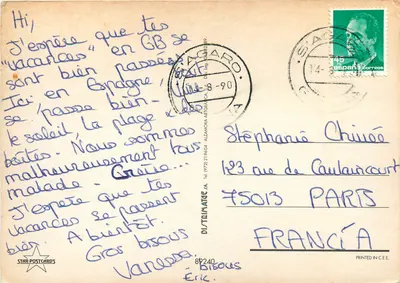 Hi,
J'espère que tes
"vacances" en GB se
sont bien passées.
Ici en Espagne,
se passe bien -
le soleil, la plage
boîtes. Nous sommes
malheureusement tous
malade -
J'espère que tes
vacances se passent
bien.
A bientôt.
Gros bisous
Vanessa.
Bisous
Éric.
S'AGARO
-8-90
45
ESPAÑA CORREOS
S'AGARO
14-8
Stéphanie
123 rue de Caulaincourt
75013 PARIS
FRANCIA
DISTRIMATEC
STAR POSTCARDS
89240
PRINTED IN C.E.E.